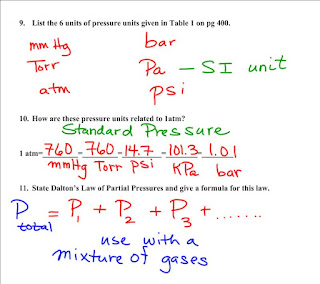 9. List the 6 units of pressure units given in Table 1 on pg 400.
mm Hg bar
Torr Pa – SI unit
atm psi
10. How are these pressure units related to 1atm?
Standard Pressure
1 atm= 760 - 760 - 14.7 - 101.3 1.01
mmHg Torr psi KPa bar
11. State Dalton's Law of Partial Pressures and give a formula for this law.
P total = P1 + P2 + P3 + .......
use with a
mixture of gases